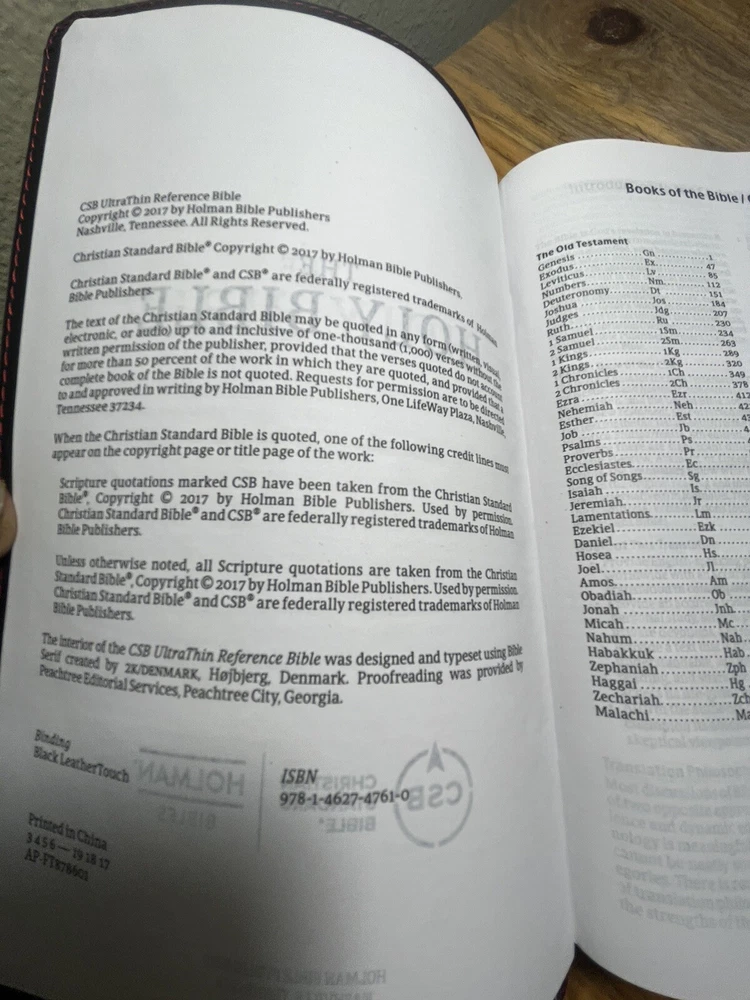 CSB UltraThin Reference Bible
Copyright © 2017 by Holman Bible Publishers
Nashville, Tennessee. All Rights Reserved.
Christian Standard Bible® Copyright © 2017 by Holman Bible Publishers.
Christian Standard Bible® and CSB® are federally registered trademarks of Holman
Bible Publishers.
The text of the Christian Standard Bible may be quoted in any form (written, visual,
electronic, or audio) up to and inclusive of one-thousand (1,000) verses without the
written permission of the publisher, provided that the verses quoted do not account
for more than 50 percent of the work in which they are quoted, and provided that a
complete book of the Bible is not quoted. Requests for permission are to be directed
to and approved in writing by Holman Bible Publishers, One LifeWay Plaza, Nashville,
Tennessee 37234.
When the Christian Standard Bible is quoted, one of the following credit lines must
appear on the copyright page or title page of the work:
Scripture quotations marked CSB have been taken from the Christian Standard
Bible®, Copyright © 2017 by Holman Bible Publishers. Used by permission.
Christian Standard Bible® and CSB® are federally registered trademarks of Holman
Bible Publishers.
Unless otherwise noted, all Scripture quotations are taken from the Christian
Standard Bible®, Copyright © 2017 by Holman Bible Publishers. Used by permission.
Christian Standard Bible® and CSB® are federally registered trademarks of Holman
Bible Publishers.
The interior of the CSB UltraThin Reference Bible was designed and typeset using Bible
Serif created by 2K/DENMARK, Højbjerg, Denmark. Proofreading was provided by
Peachtree Editorial Services, Peachtree City, Georgia.
Binding
Black LeatherTouch
ISBN
978-1-4627-4761-0
Printed in China
3 4 5 6 — 19 18 17
Books of the Bible /
The Old Testament
Genesis Gn 1
Exodus Ex. 47
Leviticus Lv 85
Numbers Nm. 112
Deuteronomy Dt 151
Joshua Jos 184
Judges Jdg 207
Ruth Ru 230
1 Samuel 1Sm 234
2 Samuel 2Sm 263
1 Kings 1Kg 289
2 Kings 2Kg 320
1 Chronicles 1Ch 349
2 Chronicles 2Ch 378
Ezra Ezr
Nehemiah Neh
Esther Est
Job Jb
Psalms Ps
Proverbs Pr
Ecclesiastes Ec
Song of Songs Sg
Isaiah Is
Jeremiah Jr
Lamentations Lm
Ezekiel Ezk
Daniel Dn
Hosea Hs
Joel Jl
Amos Am
Obadiah Ob
Jonah Jnh
Micah Mc
Nahum Nah
Habakkuk Hab
Zephaniah Zph
Haggai Hg
Zechariah Zch
Malachi